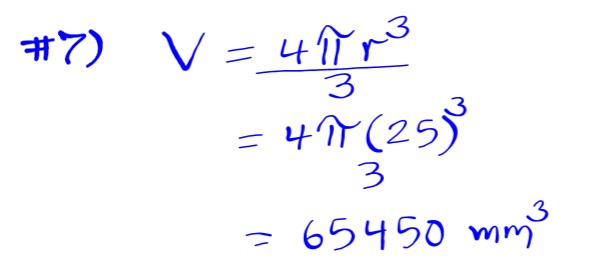 #7) V = 4πr³
3
= 4π(25)³
3
= 65450 mm³